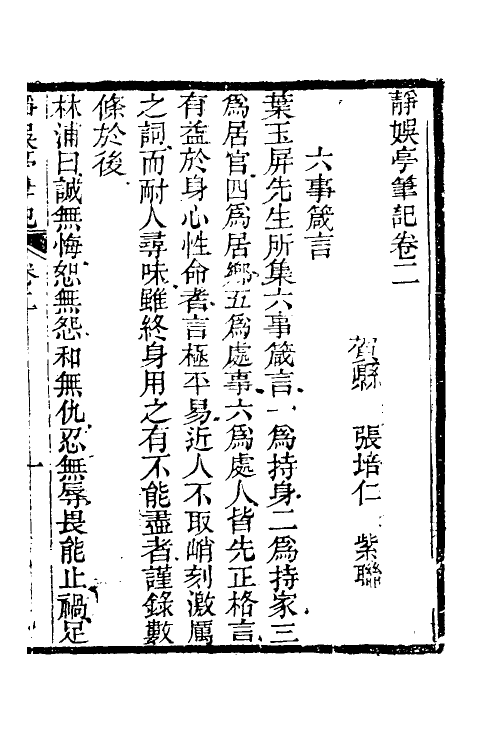 靜娛亭筆記卷二
賀縣 張培仁 紫聯
六事箴言
葉玉屏先生所集六事箴言一為持身二為持家三
為居官四為居鄉五為處事六為處人皆先正格言
有益於身心性命者言極平易近人不取峭刻激厲
之詞而耐人尋味雖終身用之有不能盡者謹錄數
條於後
林浦曰誠無悔恕無怨和無仇忍無辱畏能止禍足
靜娛亭筆記 卷二 一